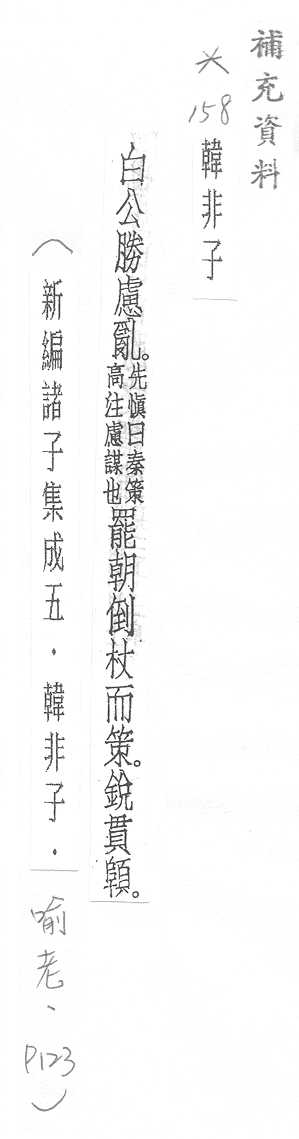 補充資料
※158 韓非子
白公勝慮亂。先慎曰秦策高注慮謀也罷朝倒杖而策。銳貫顊。
(新編諸子集成五．韓非子．喻老、P123)